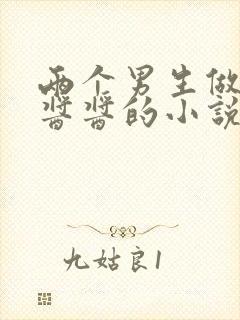 两个男生做
酱酱的小说
九姑良1